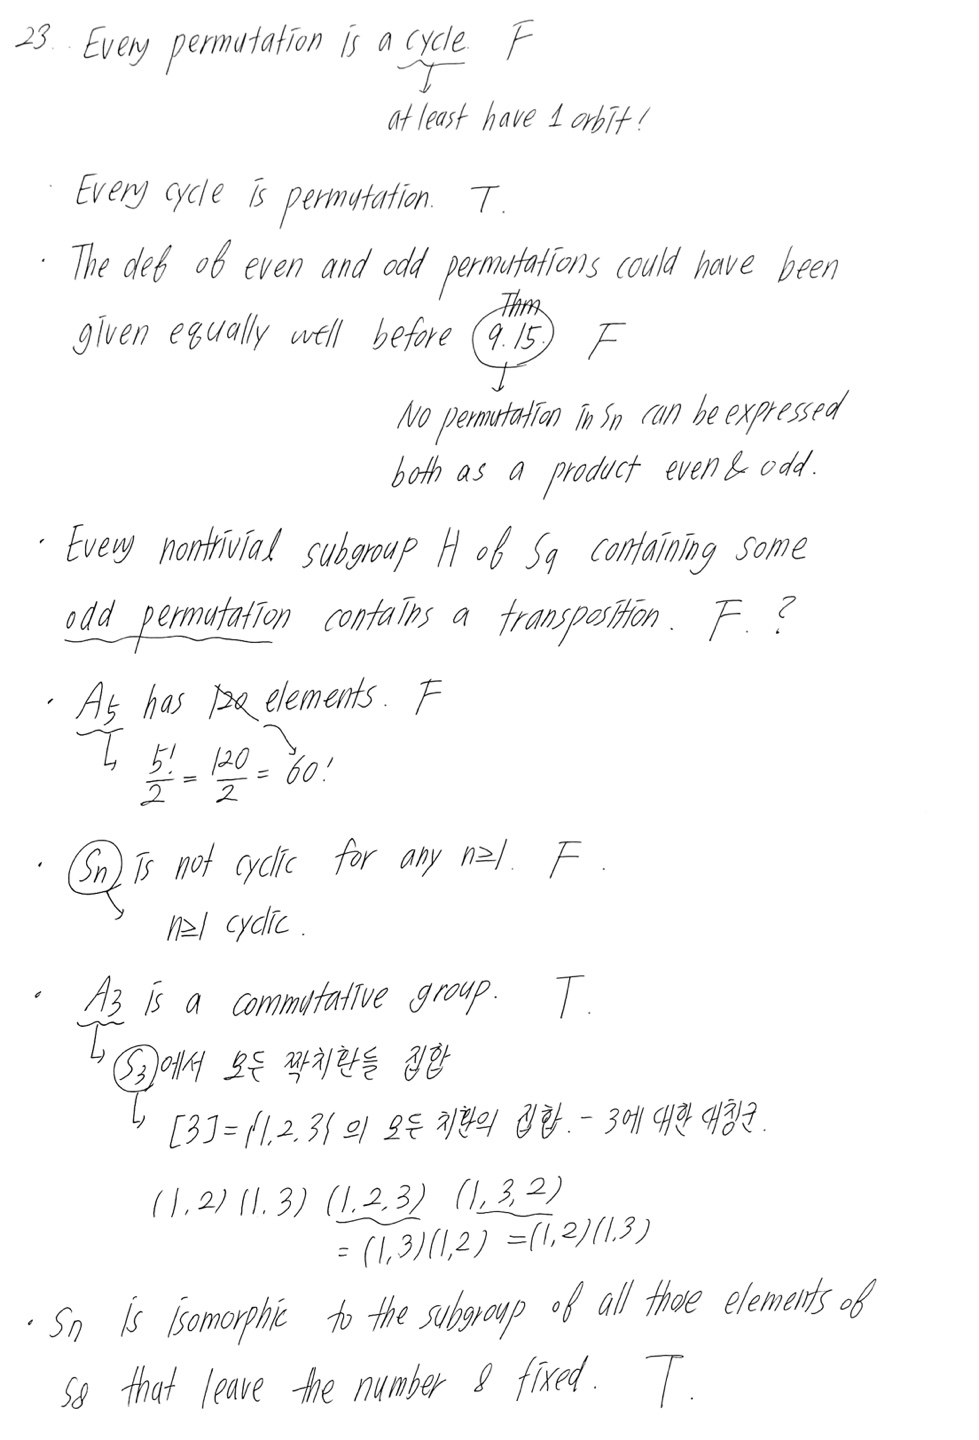 23. Every permutation is a cycle. F
at least have 1 orbit!
· Every cycle is permutation. T.
· The def of even and odd permutations could have been
given equally well before Thm 9.15. F
No permutation in Sn can be expressed
both as a product even & odd.
· Every nontrivial subgroup H of S9 containing some
odd permutation contains a transposition. F. ?
· A5 has 120 elements. F
5!/2 = 120/2 = 60!
· Sn is not cyclic for any n≥1. F.
n≥1 cyclic.
· A3 is a commutative group. T.
S3에서 모든 짝치환들 집합
[3]={1,2,3}의 모든 치환의 집합. - 3에 대한 대칭군.
(1,2) (1,3) (1,2,3) (1,3,2)
= (1,3)(1,2) =(1,2)(1,3)
· Sn is isomorphic to the subgroup of all those elements of
S8 that leave the number 8 fixed. T.